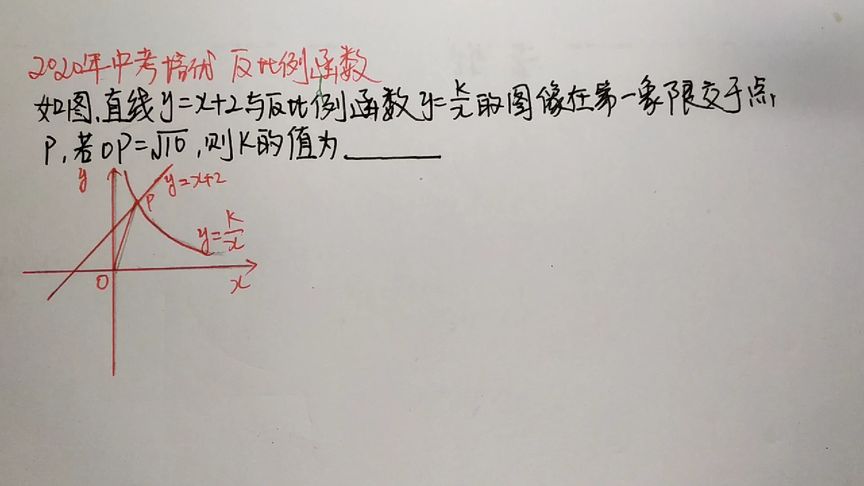 2020年中考培优 反比例函数
如图,直线y=x+2与反比例函数y=k/x的图像在第一象限交于点
P,若OP=√10,则K的值为______
y
y=x+2
P
y=k/x
O
x